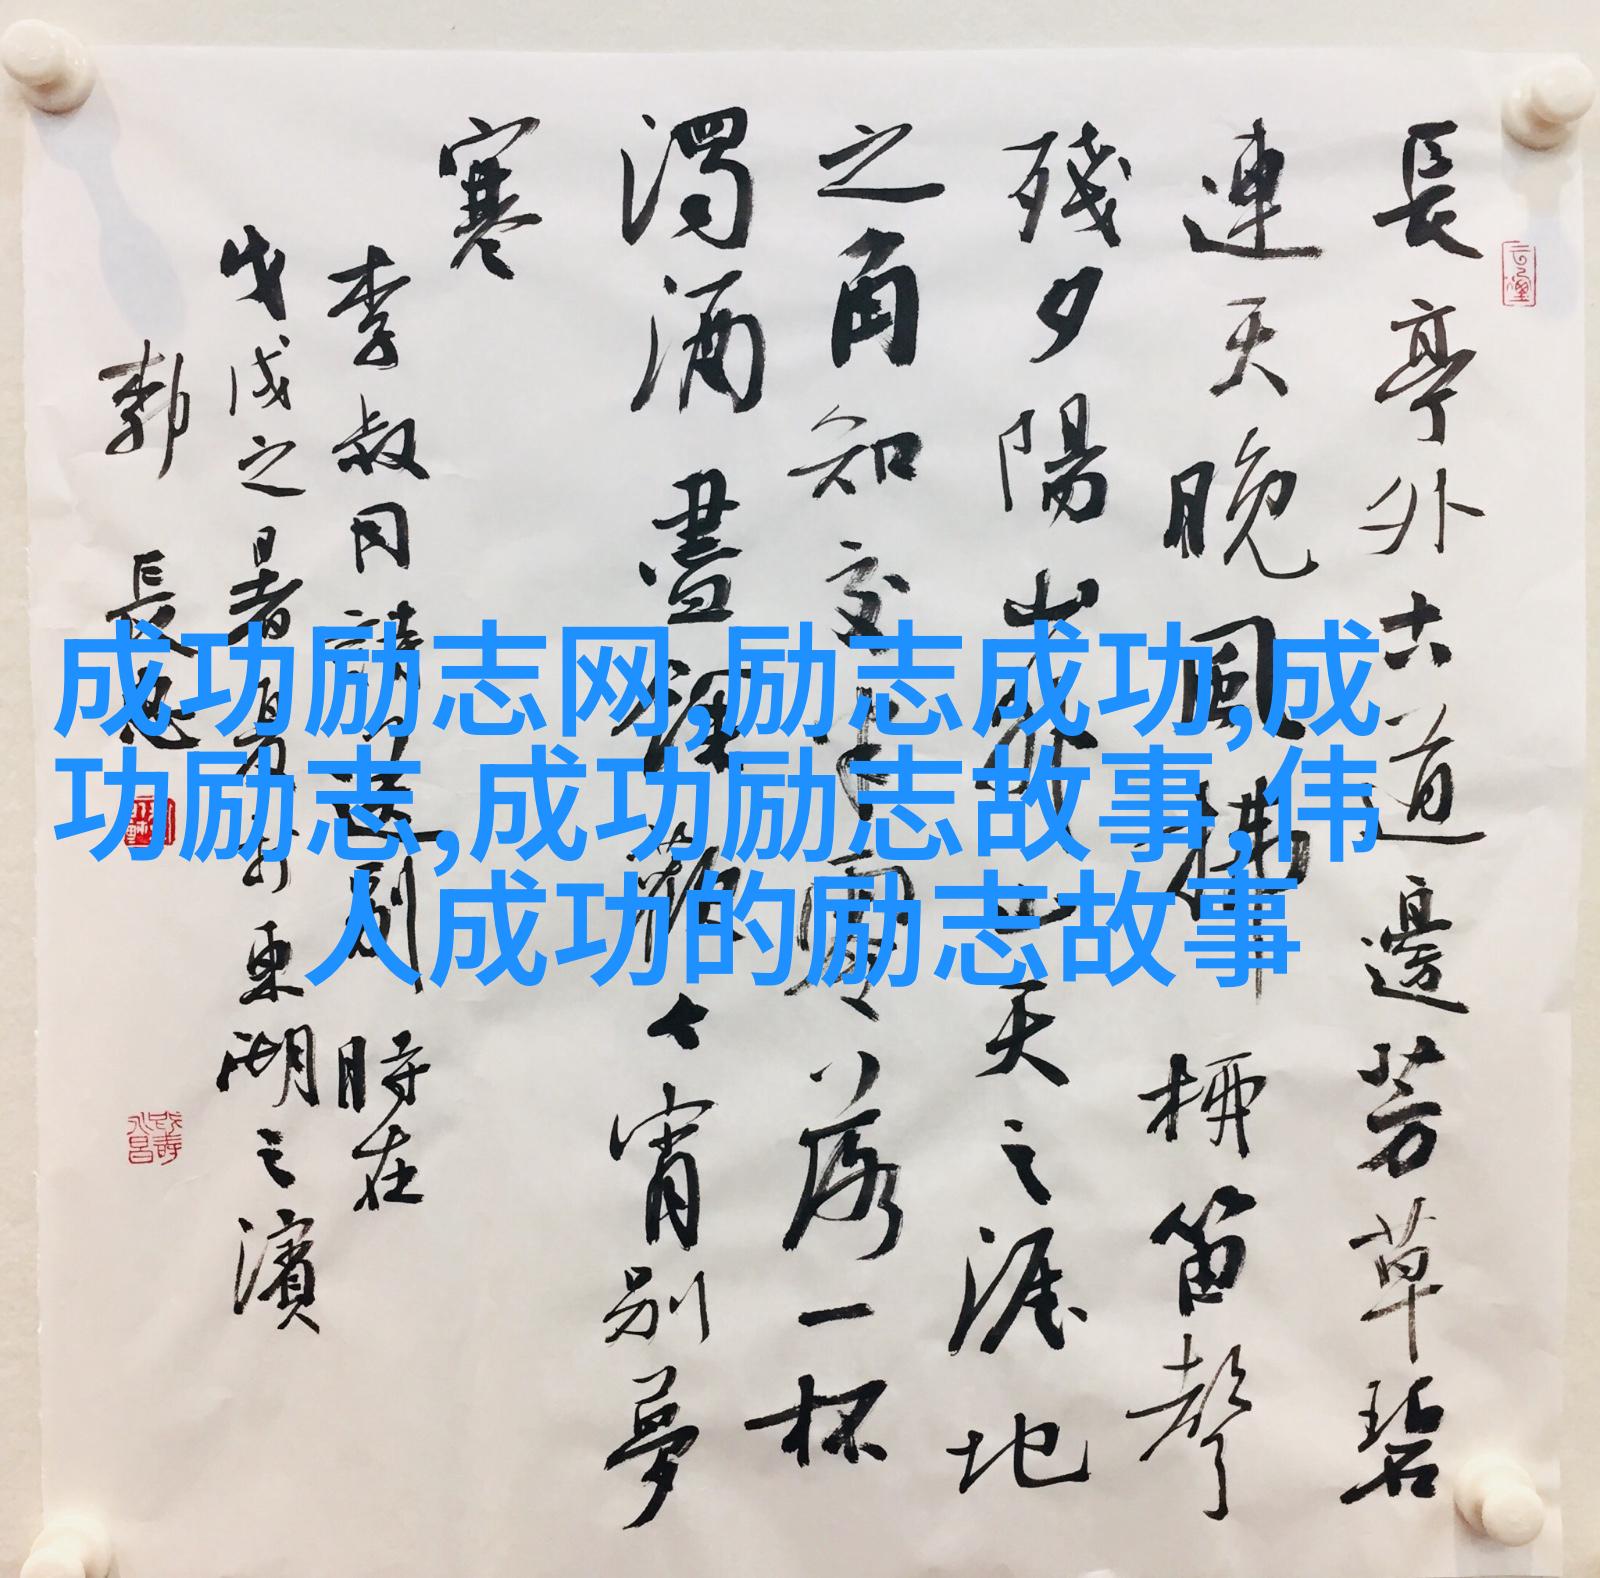 長亭外古道邊芳草碧
連天晚風拂柳笛聲
殘夕陽山外山天之涯地
之角知交半零落一杯
濁酒盡餘歡今宵別夢
寒
李叔同詩送別 時在
戊戌之暑夏於東湖之濱
郭 長
成功励志网,励志成功,成
功励志,成功励志故事,伟
人成功的励志故事